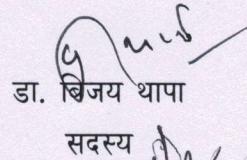 डा. बिजय थापा
सदस्य